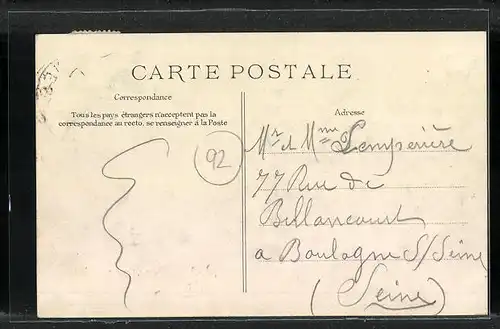 CARTE POSTALE
Correspondance
Tous les pays étrangers n'acceptent pas la
correspondance au recto, se renseigner à la Poste
92
Adresse
Mr et Mme Lemperière
77 Rue de
Billancourt
a Boulogne S/Seine
(Seine)